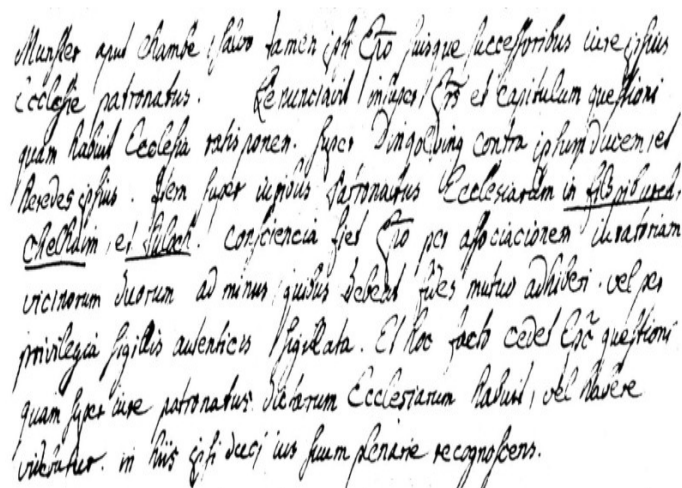 Munster apud Chambe, salvo tamen ipsi Epo suisque successoribus iure ipsius
Ecclesie patronatus. Renunciavit insuper Eps et capitulum questioni
quam habuit Ecclesia ratisponen. super Dingolving contra ipsum ducem, et
heredes ipsius. Item super iuribus Patronatus Ecclesiarum in
Chelhaim, et. consciencia fiet Epo per associacionem iuratoriam
vicinorum duorum ad minus, quibus debeat fides mutuo adhiberi. vel per
privilegia sigillis autenticis sigillata. Et hoc facto cedet Epc questioni
quam super iure patronatus dictarum Ecclesiarum habuit, vel habere
videbatur. in hiis ipsi duci ius suum plenarie recognoscens.